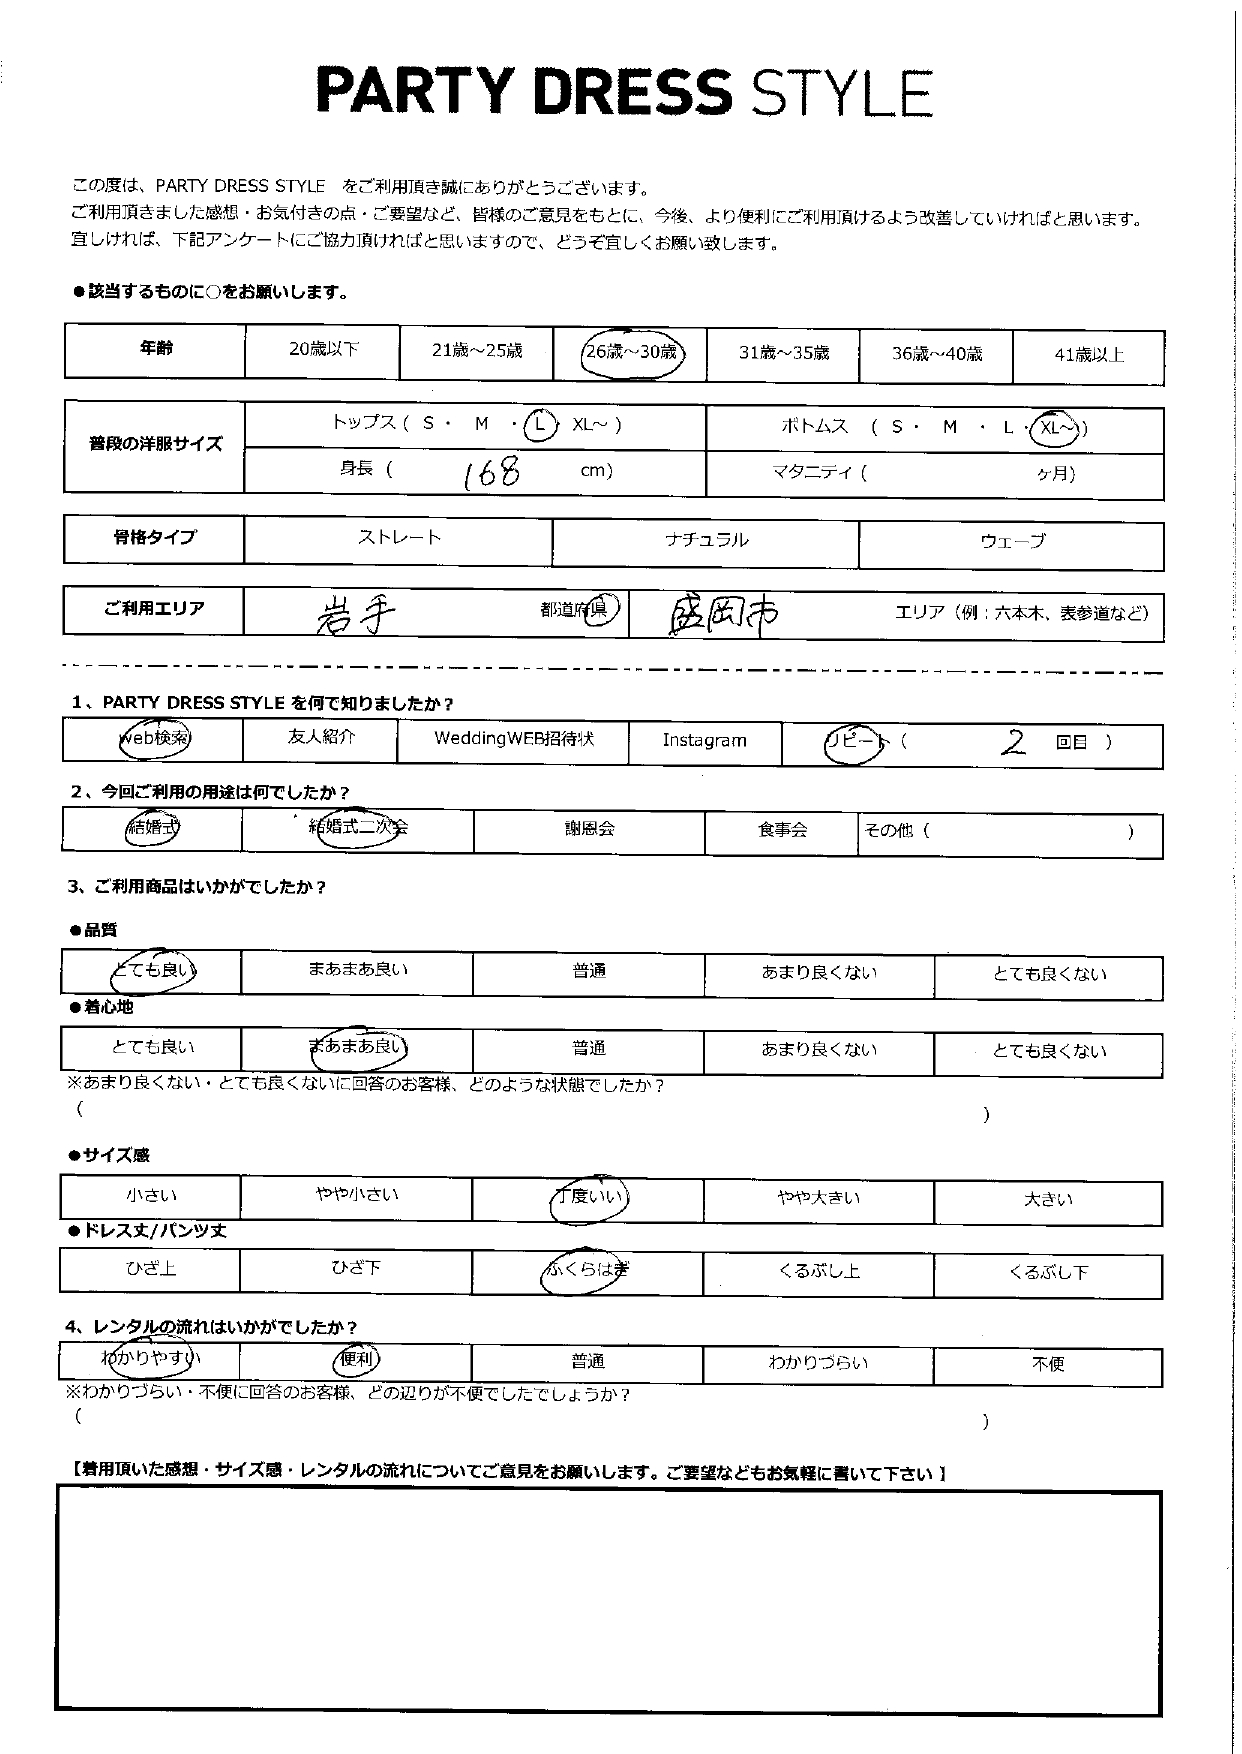 PARTY DRESS STYLE
この度は、PARTY DRESS STYLE をご利用頂き誠にありがとうございます。
ご利用頂きました感想・お気付きの点・ご要望など、皆様のご意見をもとに、今後、より便利にご利用頂けるよう改善していければと思います。
宜しければ、下記アンケートにご協力頂ければと思いますので、どうぞ宜しくお願い致します。
●該当するものに○をお願いします。
年齢 20歳以下 21歳～25歳 26歳～30歳 31歳～35歳 36歳～40歳 41歳以上
普段の洋服サイズ トップス ( S ・ M ・ L ・ XL～ ) ボトムス ( S ・ M ・ L ・ XL～ )
身長 ( 168 cm) マタニティ ( ヶ月)
骨格タイプ ストレート ナチュラル ウェーブ
ご利用エリア 岩手 都道府県 盛岡市 エリア（例：六本木、表参道など）
1、PARTY DRESS STYLE を何で知りましたか？
Web検索 友人紹介 WeddingWEB招待状 Instagram リピート ( 2 回目 )
2、今回ご利用の用途は何でしたか？
結婚式 結婚式二次会 謝恩会 食事会 その他 ( )
3、ご利用商品はいかがでしたか？
●品質
とても良い まあまあ良い 普通 あまり良くない とても良くない
●着心地
とても良い まあまあ良い 普通 あまり良くない とても良くない
※あまり良くない・とても良くないに回答のお客様、どのような状態でしたか？
( )
●サイズ感
小さい やや小さい 丁度いい やや大きい 大きい
●ドレス丈/パンツ丈
ひざ上 ひざ下 ふくらはぎ くるぶし上 くるぶし下
4、レンタルの流れはいかがでしたか？
わかりやすい 便利 普通 わかりづらい 不便
※わかりづらい・不便に回答のお客様、どの辺りが不便でしたでしょうか？
( )
【着用頂いた感想・サイズ感・レンタルの流れについてご意見をお願いします。ご要望などもお気軽に書いて下さい 】